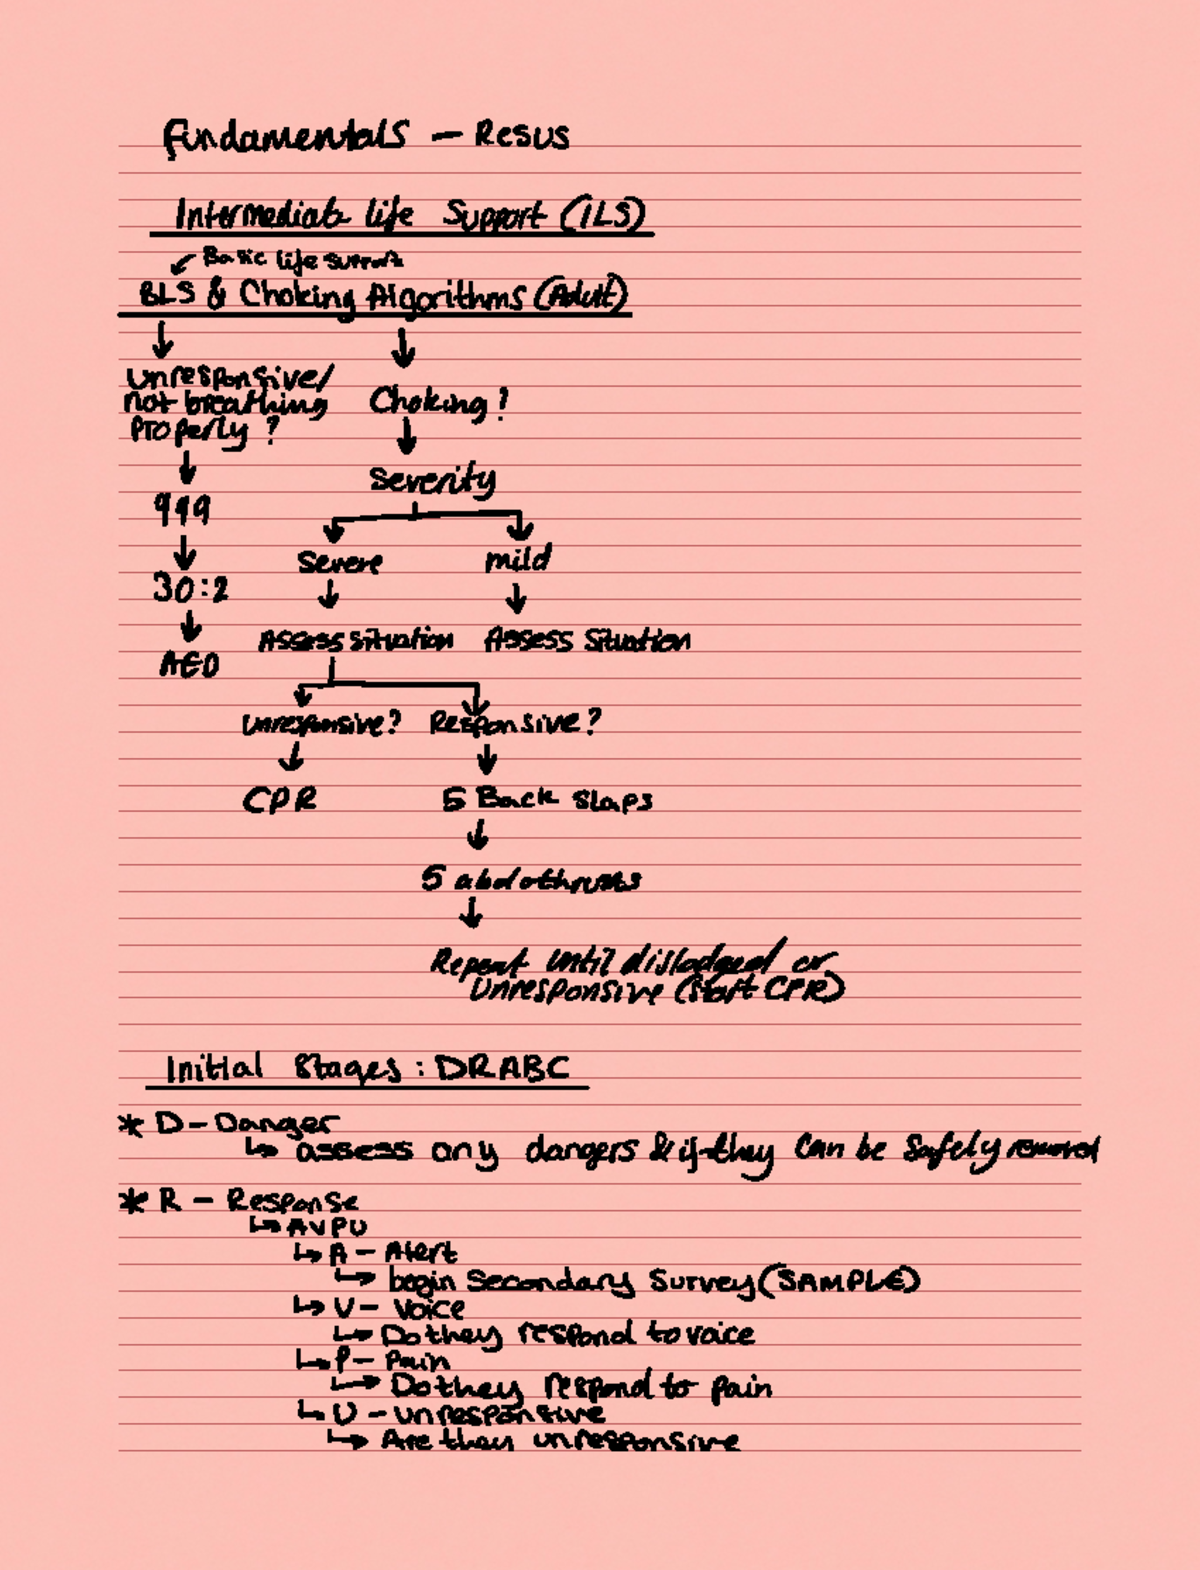 Fundamentals - Resus
Intermediate life Support (ILS)
Basic life support
BLS & Choking Algorithms (Adult)
Unresponsive/
not breathing
Properly?
999
30:2
AED
Choking?
Severity
Severe
mild
Assess situation
Assess Situation
Unresponsive?
Responsive?
CPR
5 Back slaps
5 abdo thrusts
Repeat until dislodged or
Unresponsive (start CPR)
Initial Stages: DRABC
* D - Danger
↳ assess any dangers & if they can be safely removed
* R - Response
↳ AVPU
↳ A - Alert
↳ begin Secondary Survey (SAMPLE)
↳ V - Voice
↳ Do they respond to voice
↳ P - Pain
↳ Do they respond to pain
↳ U - unresponsive
↳ Are they unresponsive